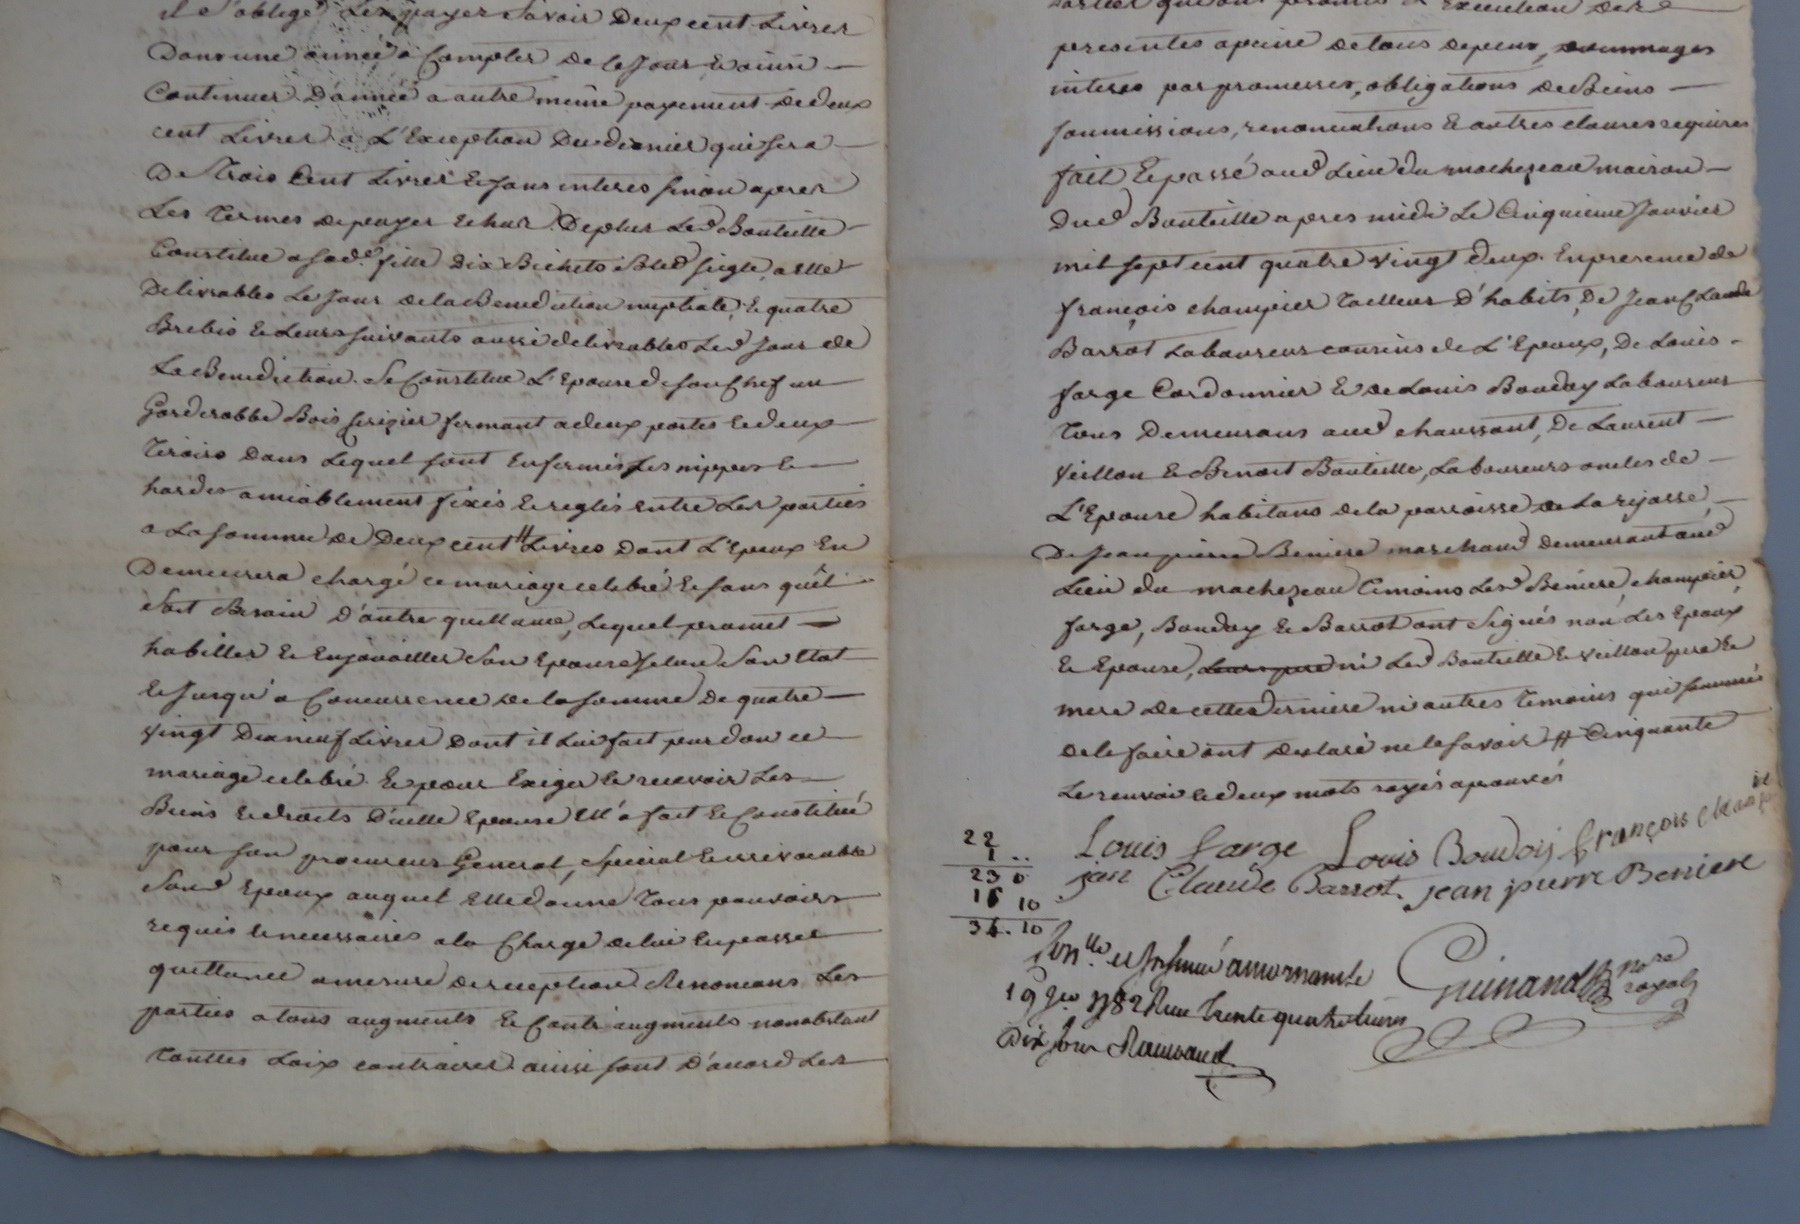 il s'oblige Les payer Savoir Deux cent Livres
Dans une année a Compter de ce Jour Et ainsi
Continuer D'année a autre meme payement de deux
cent Livres a L'Exception Du dernier qui sera
De Trois Cent Livres Et sans interes sinon apres
Les Termes de payer echus. De plus Led Bouteille
Constitue a sad.e fille Dix Bichets Bled seigle a elle
Delivrables Le Jour de la Benediction nuptiale, Et quatre
Brebis Et Leurs suivants aussi delivrables Led Jour de
La Benediction. Se Constitue L'Epouse de son Chef un
Garderobbe Bois serisier fermant a deux portes Et deux
Tiroirs dans Lequel sont Enfermés ses nippes Et
hardes amiablement fixés Et reglés entre Les parties
a La somme de Deux cent # Livres Dont L'Epoux En
Demeurera chargé ce mariage celebré Et sans qu'êl
soit Besoin D'autre quittance, Lequel promet
habiller Et Enjoailler Son Epouse selon Son Etat
Et Jusqu'a Concurrence de la somme De quatre
vingt Dix neuf Livres Dont il Lui fait pur don ce
mariage celebré. Et pour Exiger Et recevoir Les
Biens Et droits D'icelle Epouse Ell'a fait Et Constitué
pour son procureur General, Special Et irrevocable
Sond Epoux auquel Elle donne Tous pouvoirs
requis Et necessaires a la Charge de lui En passer
quittance a mesure de reception. Renoncans Les
parties a tous augments Et Contr'augments nonobstant
Touttes Loix contraires. ainsi sont D'accord Les
parties qui ont promis L'Execution des
presentes a peine de tous depens, dommages
interes par promesses, obligations de Biens
soumissions, renonciations Et autres clauses requises
fait Et passé aud Lieu du machezeau maison
Dud Bouteille apres midi Le Cinquieme Janvier
mil sept cent quatre vingt deux. En presence de
françois champier Tailleur D'habits, De Jean Claude
Barrot Laboureur cousins de L'Epoux, De Louis
farge Cordonnier Et de Louis Bouday Laboureur
Tous Demeurans aud chaussant, De Laurent
Veillon Et Benoit Bouteille, Laboureurs oncles de
L'Epouse habitans de la parroisse de La rejasse,
De Jean pierre Beniere marchand demeurant aud
Lieu du machezeau Temoins Lesd Beniere, champier,
farge, Bouday Et Barrot ont Signés non Les Epoux
Et Epouse, ni Led Bouteille Et Veillon pere Et
mere de cette derniere ni autres Temoins qui sommés
de le faire ont declaré ne le savoir # Cinquante
Le renvoi Et deux mots rayés aprouvés
Louis farge Louis Boudoy françois
jan Claude Barrot. jean pierre Beniere
22
1 ..
23 0
11 10
34. 10
Con.lle et Insinué a mornant le
19 Jer 1782 Reçu Trente quatre Livres
Dix sous
Guinand nore
royal